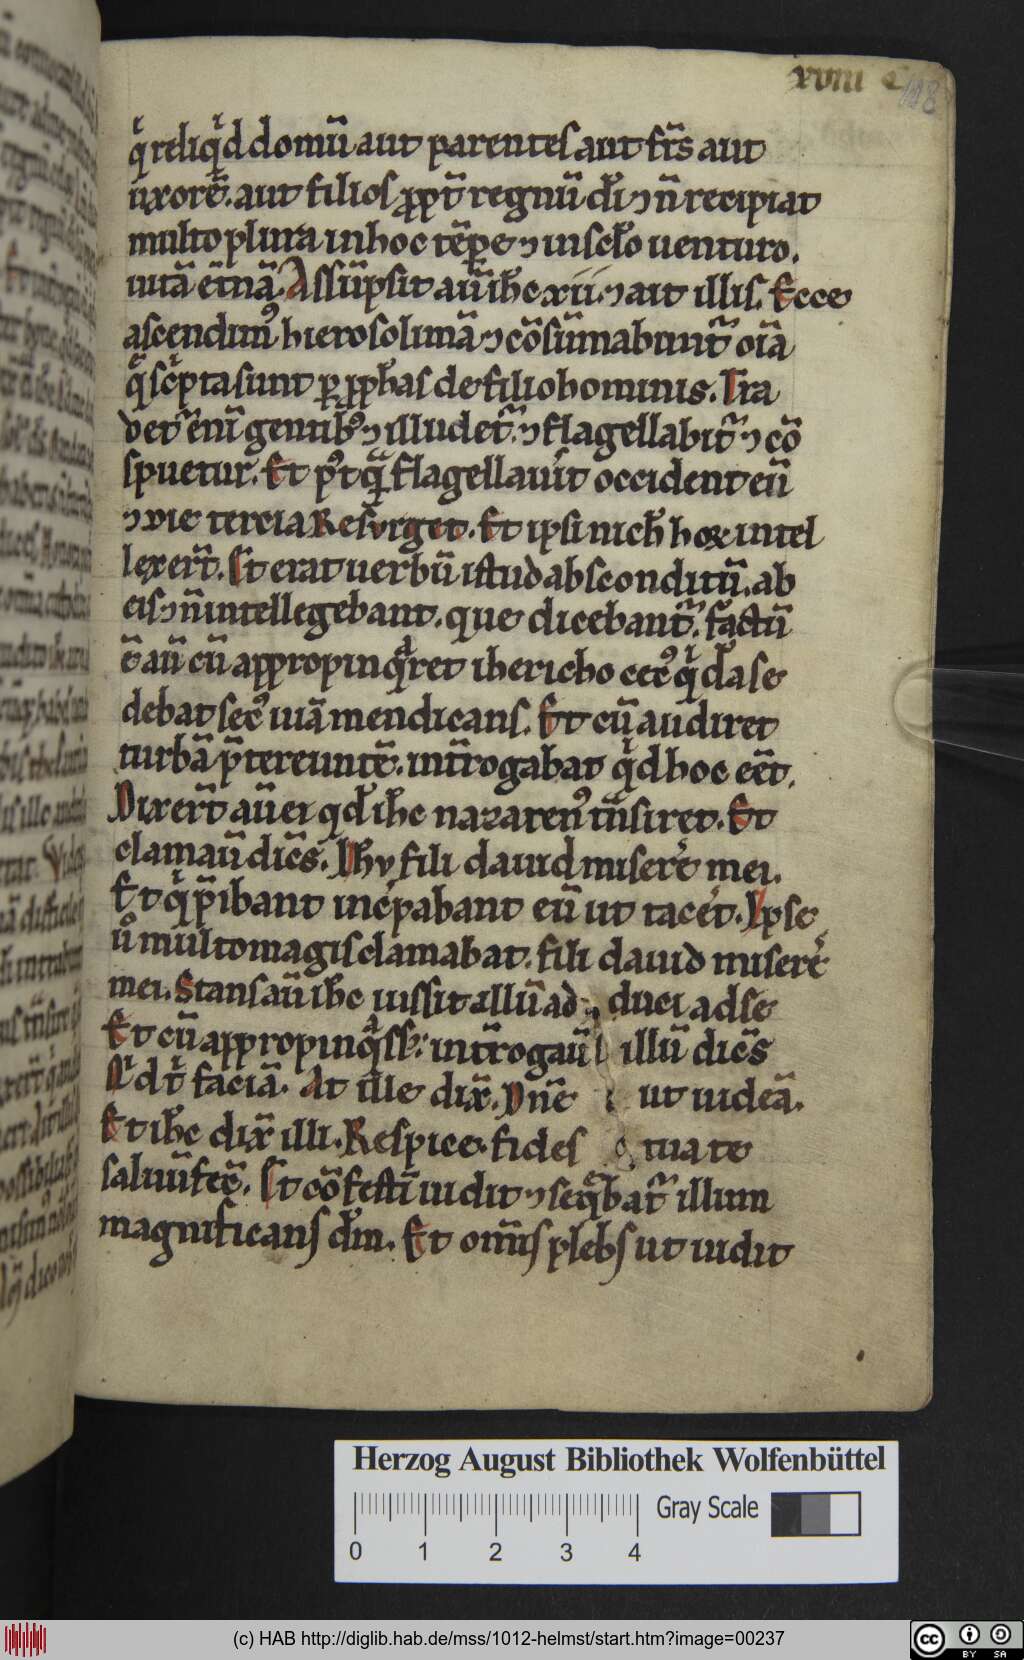 xviii c
118
qͥ reliqͥd domū aut parentes aut frīs aut
uxorē. aut filios ꝓpt̄ regnū dī ⁊ n̄ recipiat
multo plura in hoc tēꝑe ⁊ in sc̄lo uenturo.
uitā et̄nā. Assūpsit aū ihc̄ xii. ⁊ ait illis. Ecce
ascendimꝰ hierosolimā ⁊ cōsūmabunt᷑ oīa
q̄ scͥpta sunt ꝑ ꝓph̄as de filio hominis. Tra
det᷑ enī gentibꝰ ⁊ illudet᷑. ⁊ flagellabit᷑ ⁊ cō
spuetur. Et pꝰtqͣ̄ flagellauīt occident eū
⁊ die tercia Resurget. Et ipsi nich̄ hoꝝ intel
lexer̄t. St erat uerbū istud absconditū. ab
eis ⁊ n̄ intellegebant. que dicebant᷑. factū
ē aū cū appropinqͣret ihericho cecꝰ qͥdā se
debat secꝰ uiā mendicans. Et cū audiret
turbā p̄tereuntē. int̄rogabat qͥd hoc eēt.
Dixer̄t aū ei qd̄ ihc̄ nazarenꝰ tͣnsiret. Et
clamaū dicēs. Ihu fili dauid miserē mei.
Et qͥ p̄ibant incͥpabant eū ut tacēt. Ipse
ūͦ multo magis clamabat. fili dauid miserē
mei. Stans aū ihc̄ iussit illū ad duci ad se
Et cū appropinqͣss; int̄rogaū illū dicēs
Qͥd tͥ faciā. At ille dix̄. Dn̄e ut uideā.
Et ihc̄ dix̄ illi. Respice. fides tua te
saluū fec̄. St cōfestī uidit ⁊ seqͣbat᷑ illum
magnificans dm̄. Et om̄is plebs ut uidit
Herzog August Bibliothek Wolfenbüttel
Gray Scale
0 1 2 3 4
(c) HAB http://diglib.hab.de/mss/1012-helmst/start.htm?image=00237
cc BY SA